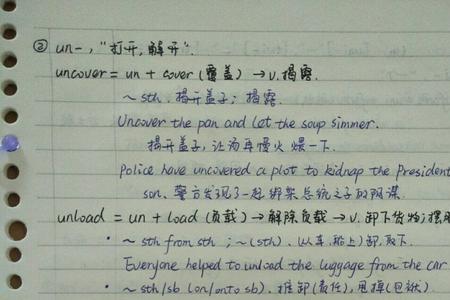 ② un-, "打开, 解开".
uncover = un + cover (覆盖) → v. 揭露.
~ sth. 揭开盖子; 揭露.
Uncover the pan and let the soup simmer.
揭开盖子, 让汤再慢火煨一下.
Police have uncovered a plot to kidnap the President
son. 警方发现了一起绑架总统之子的阴谋.
unload = un + load (负载) → 解除负载 → v. 卸下货物; 摆
· ~ sth from sth ; ~ (sth). (从车, 船上) 卸, 取下.
Everyone helped to unload the luggage from the car
· ~ sth/sb (on/onto sb). 推卸 (责任), 甩掉 (包袱).